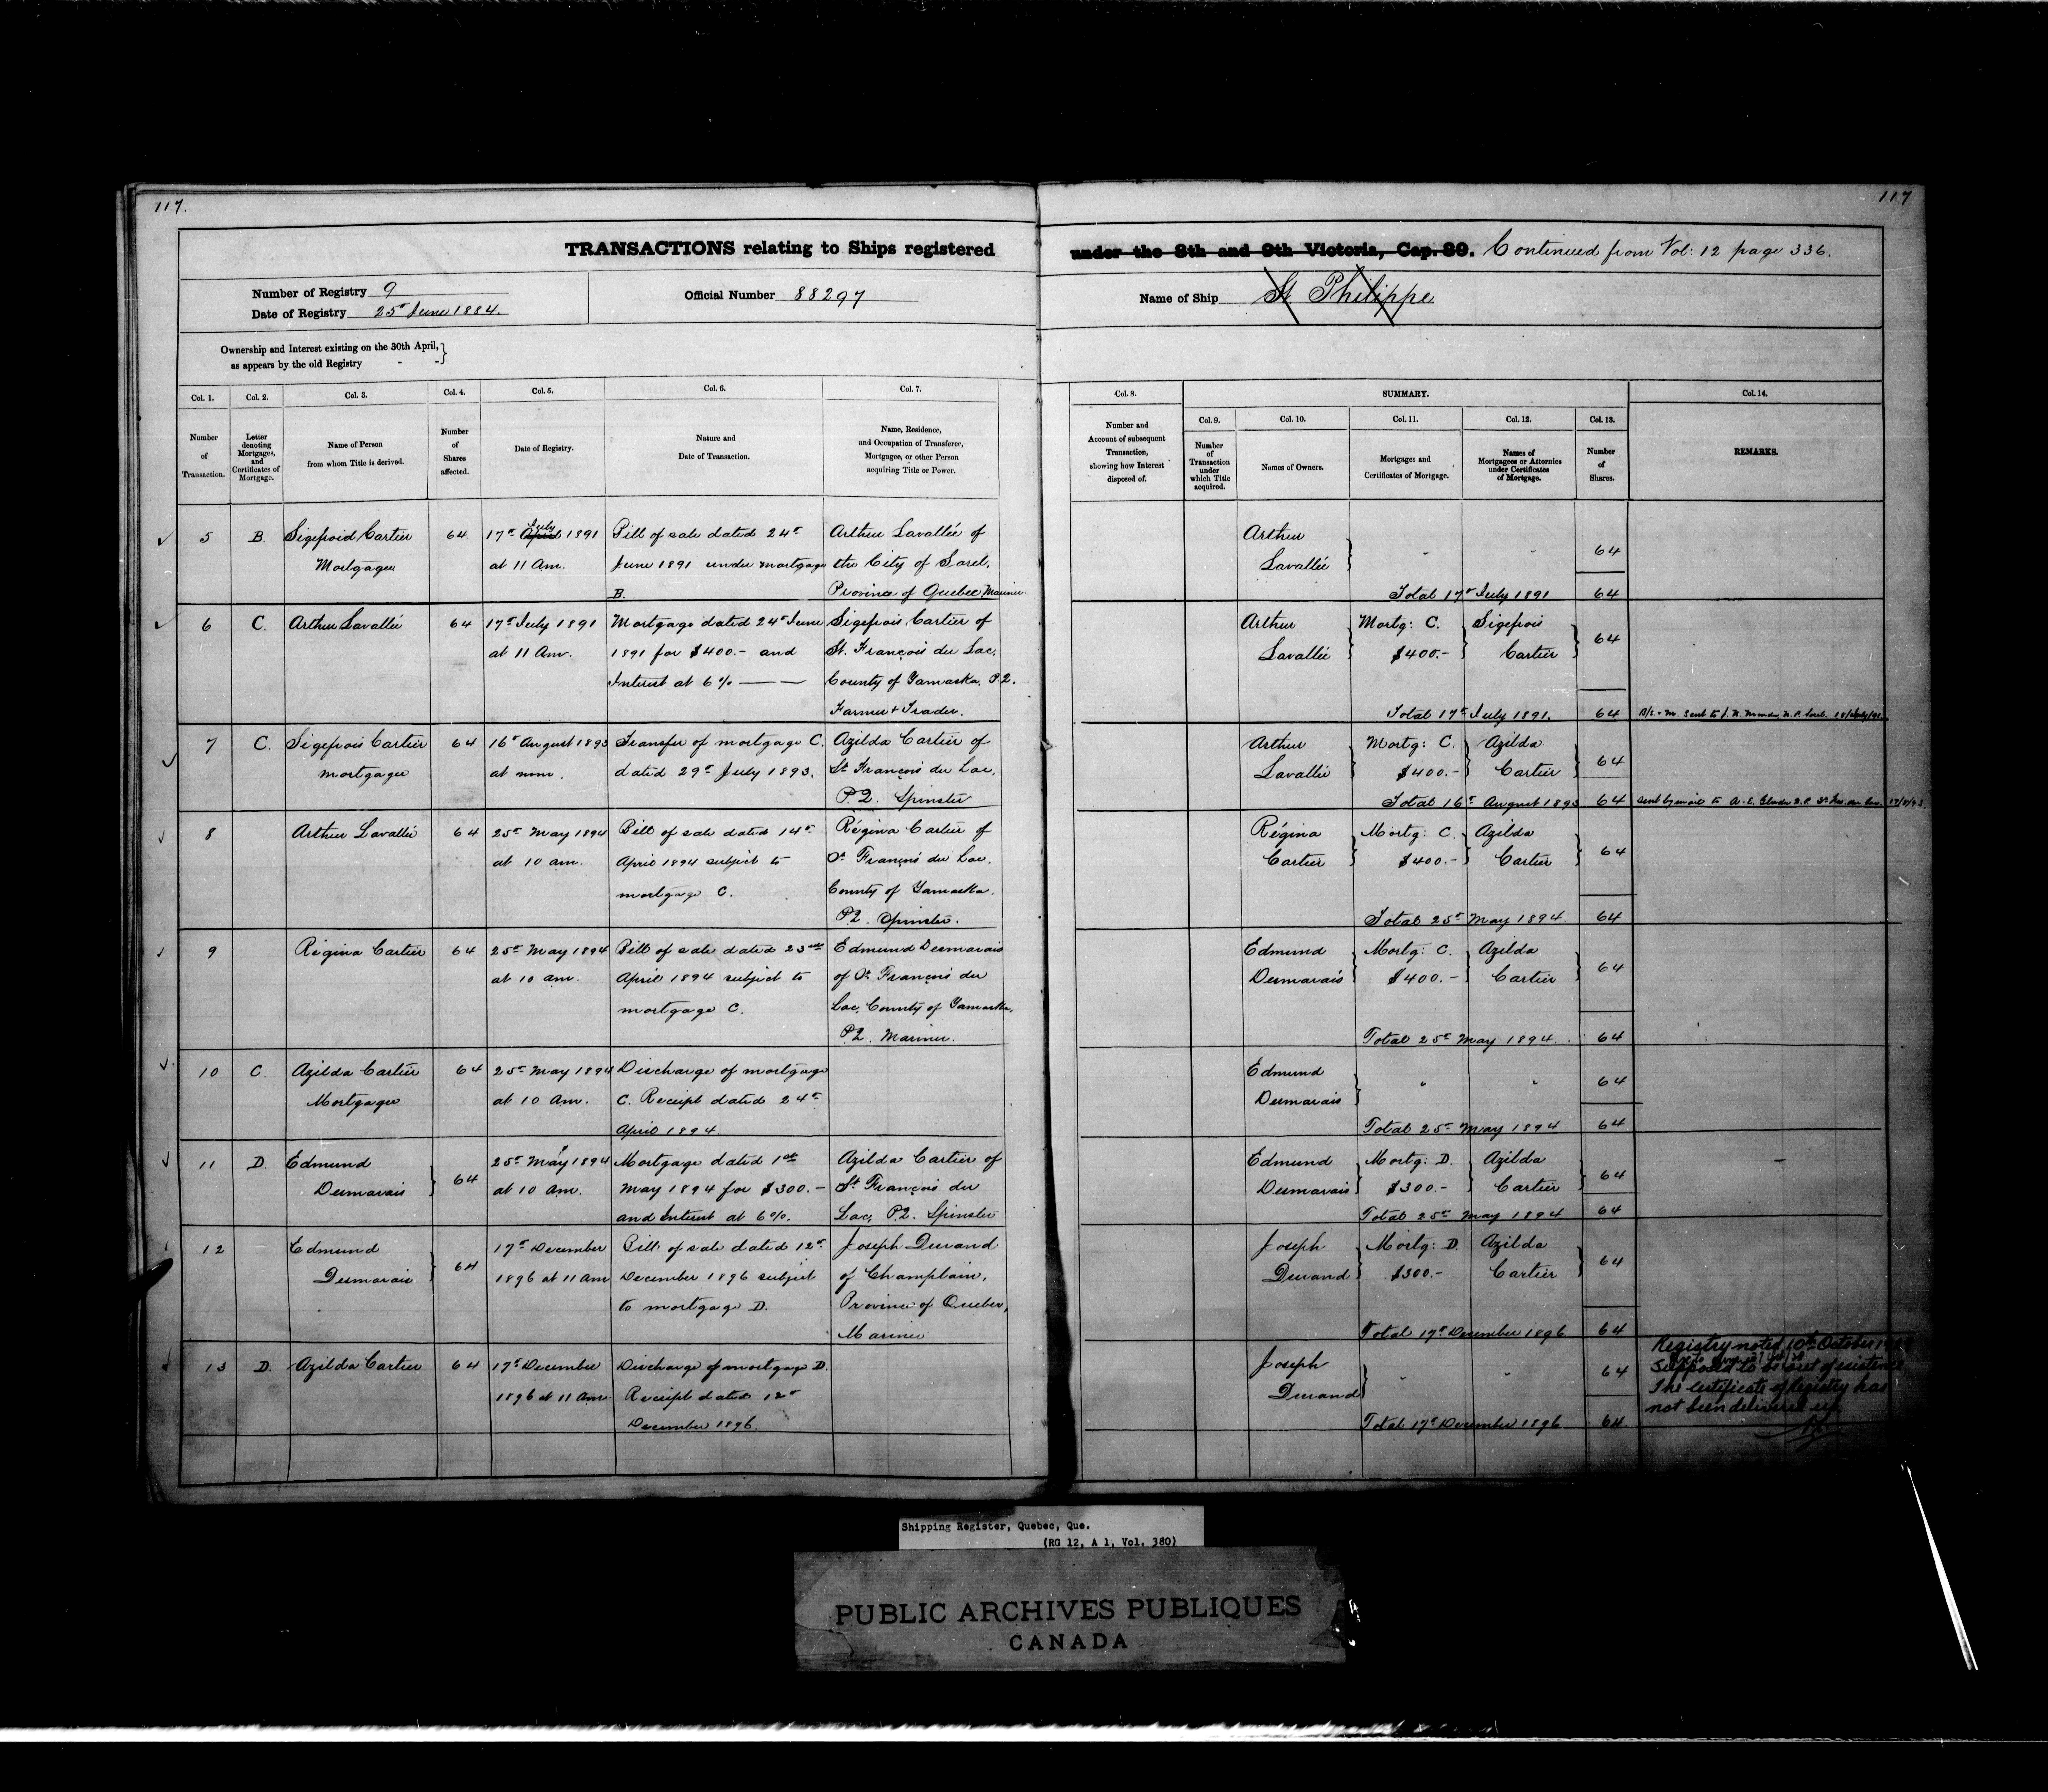 117.
117
TRANSACTIONS relating to Ships registered under the 8th and 9th Victoria, Cap. 89. Continued from Vol: 12 page 336.
Number of Registry 9
Date of Registry 25th June 1884.
Official Number 88297
Name of Ship St Philippe
Ownership and Interest existing on the 30th April,
as appears by the old Registry - -
Col. 1.
Number
of
Transaction.
Col. 2.
Letter
denoting
Mortgages,
and
Certificates of
Mortgage.
Col. 3.
Name of Person
from whom Title is derived.
Col. 4.
Number
of
Shares
affected.
Col. 5.
Date of Registry.
Col. 6.
Nature and
Date of Transaction.
Col. 7.
Name, Residence,
and Occupation of Transferee,
Mortgagee, or other Person
acquiring Title or Power.
Col. 8.
Number and
Account of subsequent
Transaction,
showing how Interest
disposed of.
SUMMARY.
Col. 9.
Number
of
Transaction
under
which Title
acquired.
Col. 10.
Names of Owners.
Col. 11.
Mortgages and
Certificates of Mortgage.
Col. 12.
Names of
Mortgagees or Attornies
under Certificates
of Mortgage.
Col. 13.
Number
of
Shares.
Col. 14.
REMARKS.
5
B.
Sigefroid Cartier
Mortgagee
64
17th April July 1891
at 11 Am.
Bill of sale dated 24th
June 1891 under mortgage
B.
Arthur Lavallée of
the City of Sorel,
Province of Quebec Mariner
Arthur
Lavallée
" "
64
Total 17th July 1891 64
6
C.
Arthur Lavallée
64
17th July 1891
at 11 Am.
Mortgage dated 24th June
1891 for $400.- and
Interest at 6%
Sigefrois Cartier of
St. François du Lac,
County of Yamaska, P.Q.
Farmer & Trader.
Arthur
Lavallée
Mortg: C.
$400.-
Sigefrois
Cartier
64
Total 17th July 1891. 64
7
C.
Sigefrois Cartier
mortgagee
64
16th August 1893
at noon.
Transfer of mortgage C.
dated 29th July 1893.
Azilda Cartier of
St François du Lac,
P.Q. Spinster
Arthur
Lavallée
Mortg: C.
$400.-
Azilda
Cartier
64
Total 16th August 1893 64
8
Arthur Lavallée
64
25th May 1894
at 10 am.
Bill of sale dated 14th
April 1894 subject to
mortgage C.
Régina Cartier of
St François du Lac.
County of Yamaska.
P.Q. Spinster.
Régina
Cartier
Mortg: C.
$400.-
Azilda
Cartier
64
Total 25th May 1894. 64
9
Régina Cartier
64
25th May 1894
at 10 am.
Bill of sale dated 23rd
April 1894 subject to
mortgage C.
Edmund Desmarais
of St François du
Lac, County of Yamaska,
P.Q. Mariner.
Edmund
Desmarais
Mortg: C.
$400.-
Azilda
Cartier
64
Total 25th May 1894. 64
10
C.
Azilda Cartier
Mortgagee
64
25th May 1894
at 10 Am.
Discharge of mortgage
C. Receipt dated 24th
April 1894.
Edmund
Desmarais
" "
64
Total 25th May 1894 64
11
D.
Edmund
Desmarais
64
25th May 1894
at 10 Am.
Mortgage dated 1st
May 1894 for $300.-
and Interest at 6%.
Azilda Cartier of
St François du
Lac, P.Q. Spinster
Edmund
Desmarais
Mortg: D.
$300.-
Azilda
Cartier
64
Total 25th May 1894 64
12
Edmund
Desmarais
64
17th December
1896 at 11 Am
Bill of sale dated 12th
December 1896 subject
to mortgage D.
Joseph Durand
of Champlain,
Province of Quebec,
Mariner
Joseph
Durand
Mortg: D.
$300.-
Azilda
Cartier
64
Total 17th December 1896 64
13
D.
Azilda Cartier
64
17th December
1896 at 11 Am
Discharge of mortgage D.
Receipt dated 12th
December 1896.
Joseph
Durand
" "
64
Total 17th December 1896 64.
Registry noted 10th October
Supposed to be out of existence
The certificate of Registry has
not been delivered up
Shipping Register, Quebec, Que.
(RG 12, A 1, Vol. 380)
PUBLIC ARCHIVES PUBLIQUES
CANADA